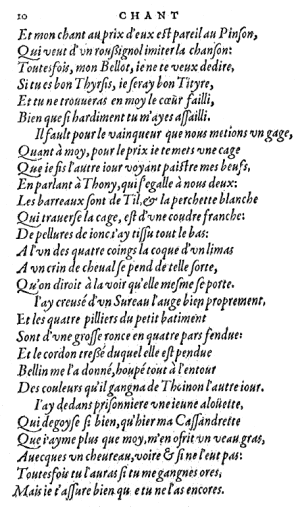 10 CHANT
Et mon chant au prix d'eux est pareil au Pinson,
Qui veut d'vn roussignol imiter la chanson:
Toutesfois, mon Bellot, ie ne te veux dedire,
Si tu es bon Thyrsis, ie seray bon Tityre,
Et tu ne trouueras en moy le cœur failli,
Bien que si hardiment tu m'ayes assailli.
Il fault pour le vainqueur que nous metions vn gage,
Quant à moy, pour le prix ie te mets vne cage
Que ie fis l'autre iour voyant paistre mes beufs,
En parlant à Thony, qui s'egalle à nous deux:
Les barreaux sont de Til, & la perchette blanche
Qui trauerse la cage, est d'vne coudre franche:
De pellures de ionc i'ay tissu tout le bas:
A l'vn des quatre coings la coque d'vn limas
A vn crin de cheual se pend de telle sorte,
Qu'on diroit à la voir qu'elle mesme se porte.
I'ay creusé d'vn Sureau l'auge bien proprement,
Et les quatre pilliers du petit batiment
Sont d'vne grosse ronce en quatre pars fendue:
Et le cordon tressé duquel elle est pendue
Bellin me l'a donné, houpé tout à l'entour
Des couleurs qu'il gangna de Thoinon l'autre iour.
I'ay dedans prisonniere vne ieune aloüette,
Qui degoyse si bien, qu'hier ma Cassandrette
Que i'ayme plus que moy, m'en ofrit vn veau gras,
Auecques vn cheureau, voire & si ne l'eut pas:
Toutesfois tu l'auras si tu me gangnes ores,
Mais ie t'assure bien qu e tu ne l'as encores.